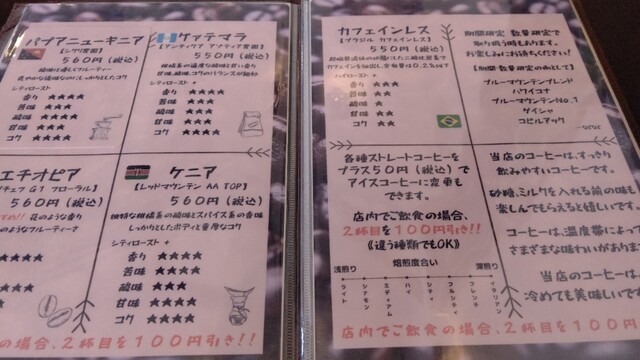 パプアニューギニア
【シグリ農園】
560円（税込）
シティロースト
香り ★★★★
苦味 ★★
酸味 ★★
甘味 ★★★
コク ★★
グァテマラ
【アンティグア アゾティア農園】
550円（税込）
シティロースト
香り ★★★★
苦味 ★★★
酸味 ★★★
甘味 ★★★
コク ★★★
エチオピア
560円（税込）
花のような香り
のようなフルーティーさ
ケニア
【レッドマウンテン AA TOP】
560円（税込）
独特な柑橘系の酸味とスパイス系の香味
しっかりとしたボディと重厚なコク
シティロースト +
香り ★★★★
苦味 ★★★★
酸味 ★★★
甘味 ★★★★
コク ★★★★
の場合、2杯目を100円引き!!
カフェインレス
【ブラジル カフェインレス】
550円（税込）
ハイロースト
香り ★★
苦味 ★
酸味 ★
甘味 ★★
コク ★★
期間限定、数量限定で
取り扱う時もあります。
お楽しみにお待ちください！
【期間・数量限定の めとして】
ブルーマウンテンブレンド
ハワイコナ
ブルーマウンテンNo.1
ゲイシャ
コピルアック
…などなど
各種ストレートコーヒーを
プラス50円（税込）で
アイスコーヒーに変更も
できます。
店内でご飲食の場合、
2杯目を100円引き!!
《違う種類でもOK》
焙煎度合い
浅煎り 深煎り
ライト
シナモン
ミディアム
ハイ
シティ
フルシティ
フレンチ
イタリアン
当店のコーヒーは、すっきり
飲みやすいコーヒーです。
砂糖、ミルクを入れる前の味も
楽しんでもらえると嬉しいです。
コーヒーは、温度帯によって
さまざまな味わいがあります
当店のコーヒーは
冷めても美味しいです
店内でご飲食の場合、2杯目を100円引